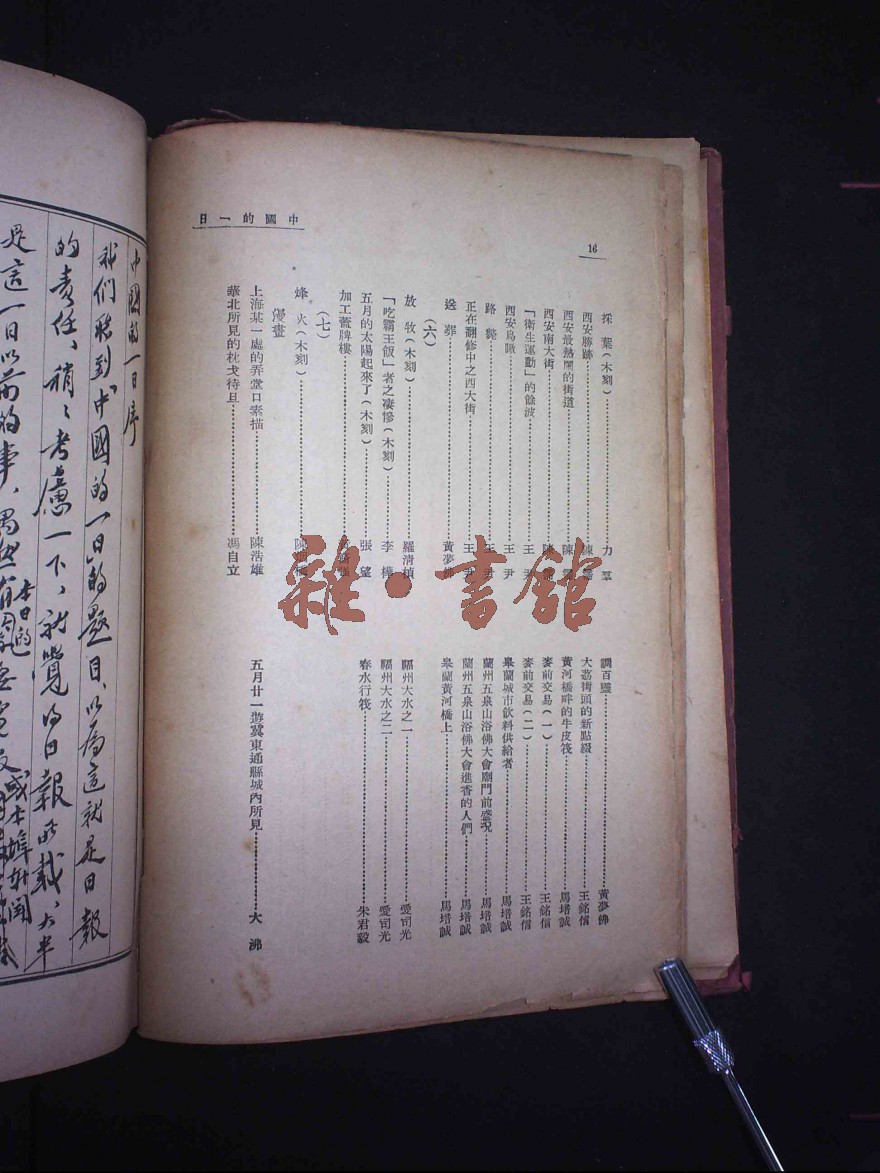 中國的一日
16
採葉(木刻)……力羣
西安勝跡……陳
西安最熱鬧的街道……陳
西安南大街……陳
「衛生運動」的餘波……王尹
西安鳥瞰……王尹
路斃……王尹
正在翻修中之西大街……王尹
送葬……黃夢
(六)
放牧(木刻)……羅清楨
「吃霸王飯」者之凄慘(木刻)……李樺
五月的太陽起來了(木刻)……張望
加工蓋牌樓……
(七)
烽火(木刻)……陳
漫畫
上海某一處的弄堂口素描……陳浩雄
華北所見的枕戈待旦……馮自立
調百靈……黃夢佛
大荔街頭的新點綴……王銘信
黃河橋畔的牛皮筏……馬培誠
麥前交易(一)……王銘信
麥前交易(二)……王銘信
皋蘭城市飲料供給者……馬培誠
蘭州五泉山浴佛大會廟門前盛況……馬培誠
蘭州五泉山浴佛大會進香的人們……馬培誠
皋蘭黃河橋上……馬培誠
福州大水之一……愛司光
福州大水之二……愛司光
春水行筏……朱君毅
五月廿一遊冀東通縣城內所見……大沸
雜·書館
中國的一日序
我們聽到中國的一日的題目,以為這就是日報
的責任、稍々考慮一下、就覺得日報所載、大半
是這一日以前的事、偶然有
本日的
或本埠新聞